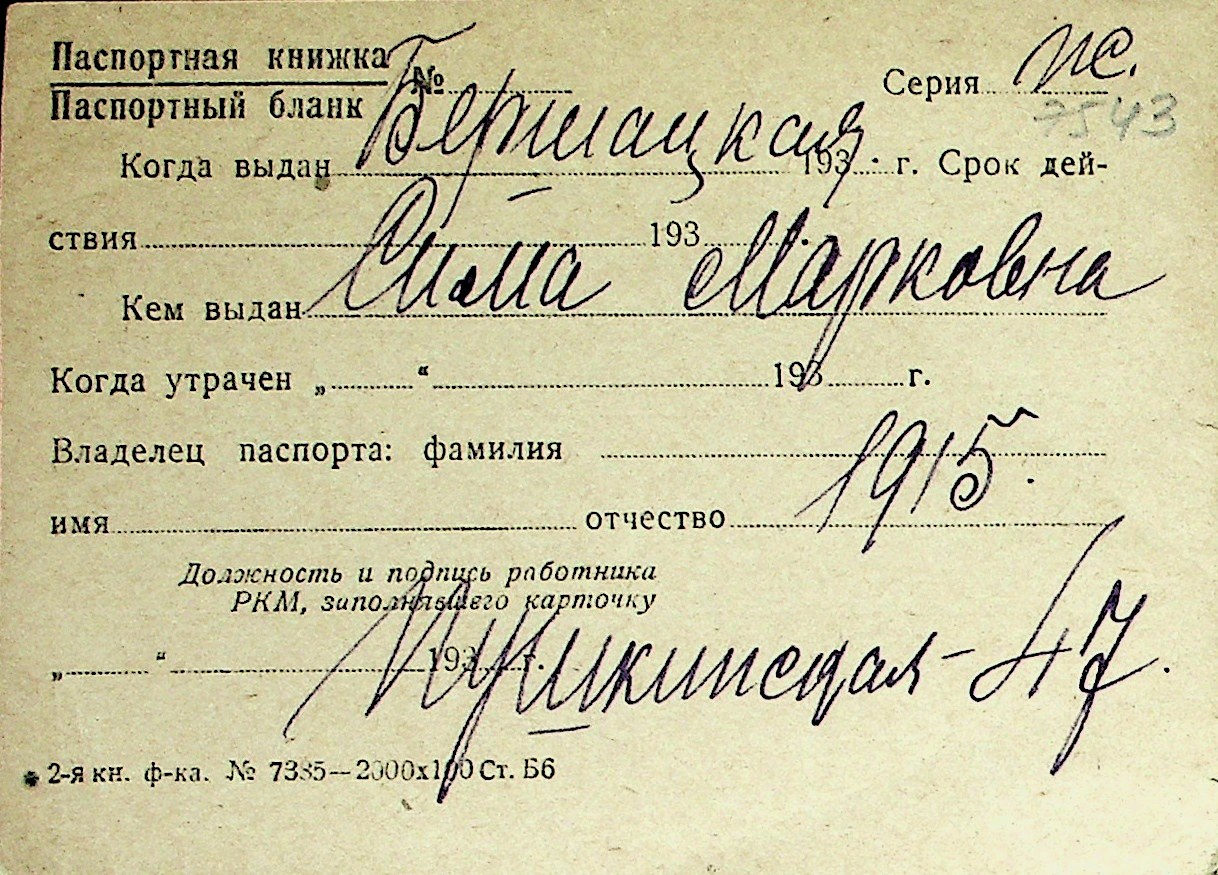 Паспортная книжка № Серия пс.
Паспортный бланк 7543
Бершацкая
Когда выдан 193 г. Срок дей-
ствия 193
Сима Марковна
Кем выдан
Когда утрачен „ “ 193 г.
Владелец паспорта: фамилия
1915
имя отчество
Должность и подпись работника
РКМ, заполнявшего карточку
Пушкинская - 47.
„ “ 193 г.
2-я кн. ф-ка. № 7385—2000х100 Ст. Б6